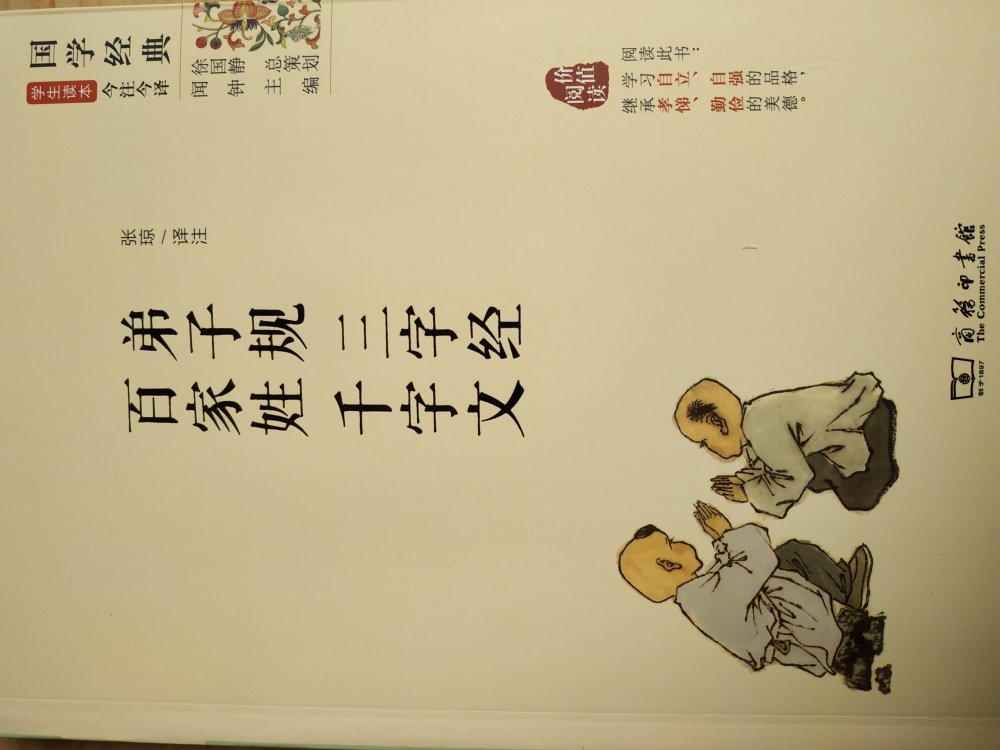 国学经典
学生读本
今注今译
徐国静 总策划
闻钟 主编
张琼/译注
弟子规 三字经
百家姓 千字文
价值
阅读
阅读此书：
学习自立、自强的品格，
继承孝悌、勤俭的美德。
商務印書館
The Commercial Press
创于1897